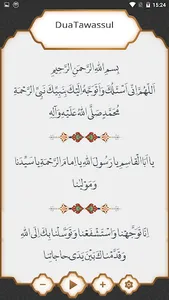 15:24
DuaTawassul
بِسْمِ اللهِ الرَّحْمنِ الرَّحِيمِ
اَللّٰهُمَّ اِنّى اَسْئَلُكَ وَاَتَوَجَّهُ اِلَيْكَ بِنَبِيِّكَ نَبِىِّ الرَّحْمَةِ
مُحَمَّدٍ صَلَّى اللهُ عَلَيْهِ وَآلِهِ
يا اَبَا الْقاسِمِ يا رَسُولَ اللهِ يا اِمامَ الرَّحْمَةِ يا سَيِّدَنا
وَمَوْلينا
اِنّا تَوَجَّهْنا وَاسْتَشْفَعْنا وَتَوَسَّلْنا بِكَ اِلَى اللهِ
وَقَدَّمْناكَ بَيْنَ يَدَىْ حاجاتِنا